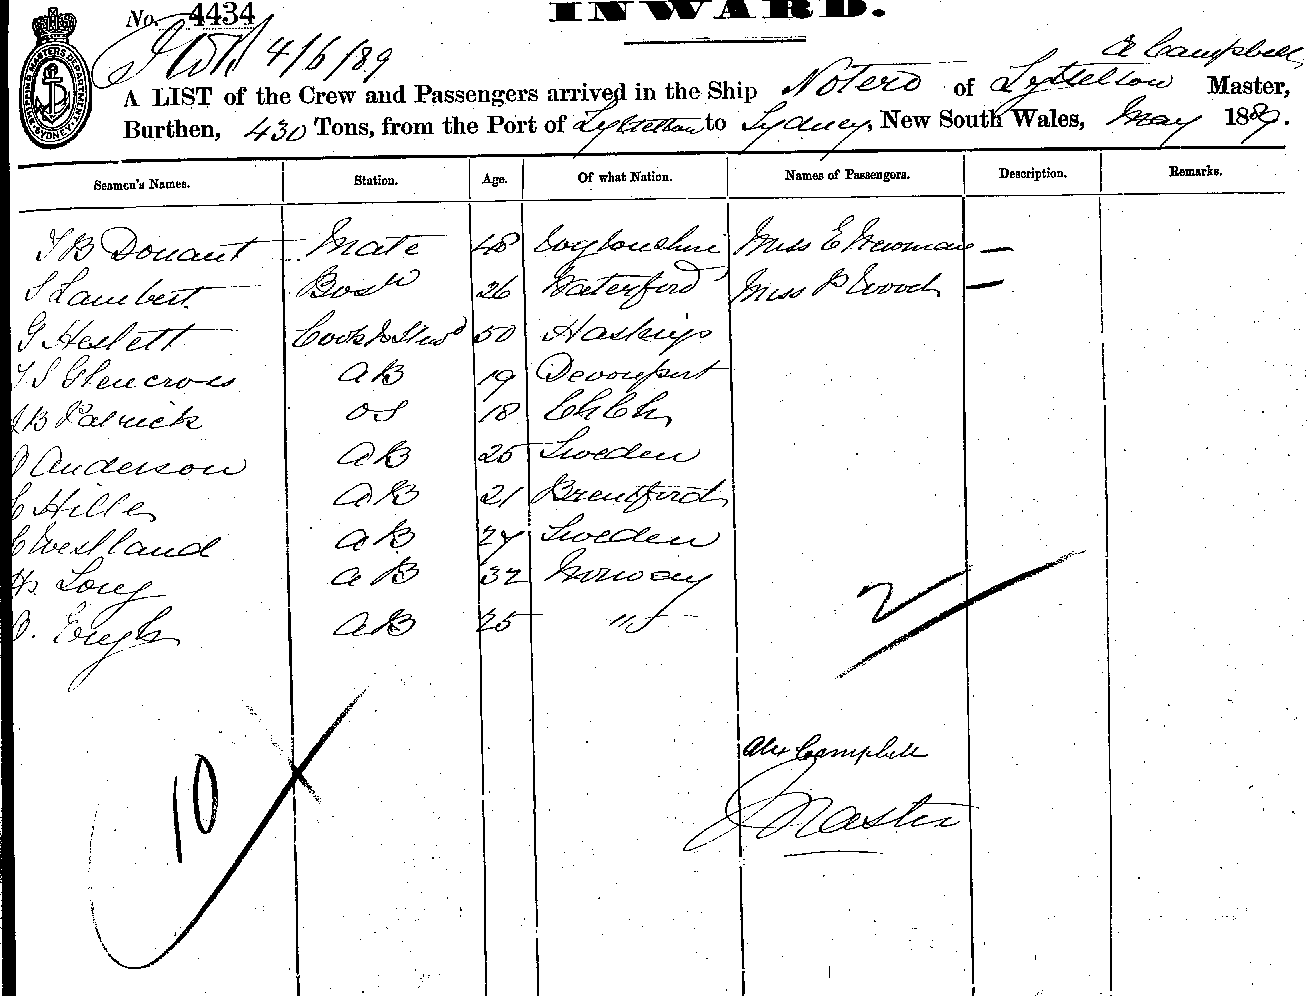 No. 4434
INWARD.
4/6/89
A Campbell
A LIST of the Crew and Passengers arrived in the Ship Notero of Lyttelton Master,
Burthen, 430 Tons, from the Port of Lyttelton to Sydney, New South Wales, May 1889.
Seamen's Names. Station. Age. Of what Nation. Names of Passengers. Description. Remarks.
Mate 48 Miss E Newman —
S Lambert Bosn 26 Waterford Miss P Wood —
G Heslett Cook & Stwd 50 Hastings
T S Glencross AB 19 Devonport
B Patrick OS 18 ChCh
Anderson AB 25 Sweden
C Hills AB 21 Brentford
C Westland AB 27 Sweden
Long AB 32 Norway
AB 25 "
2
Alex Campbell
Master
10